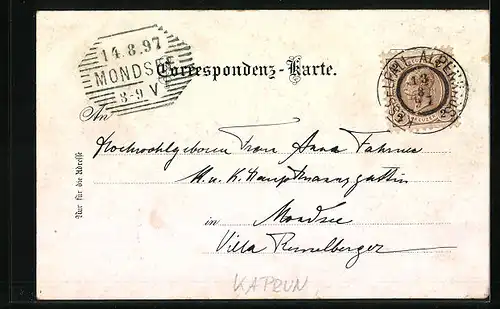 14.8.97
MONDSEE
8-9 V
Correspondenz-Karte.
An
Hochwohlgeboren Frau Anna Fahrner
K. u. K. Hauptmannsgattin
in Mondsee
Villa Rennelberger
Nur für die Adresse
KAPRUN